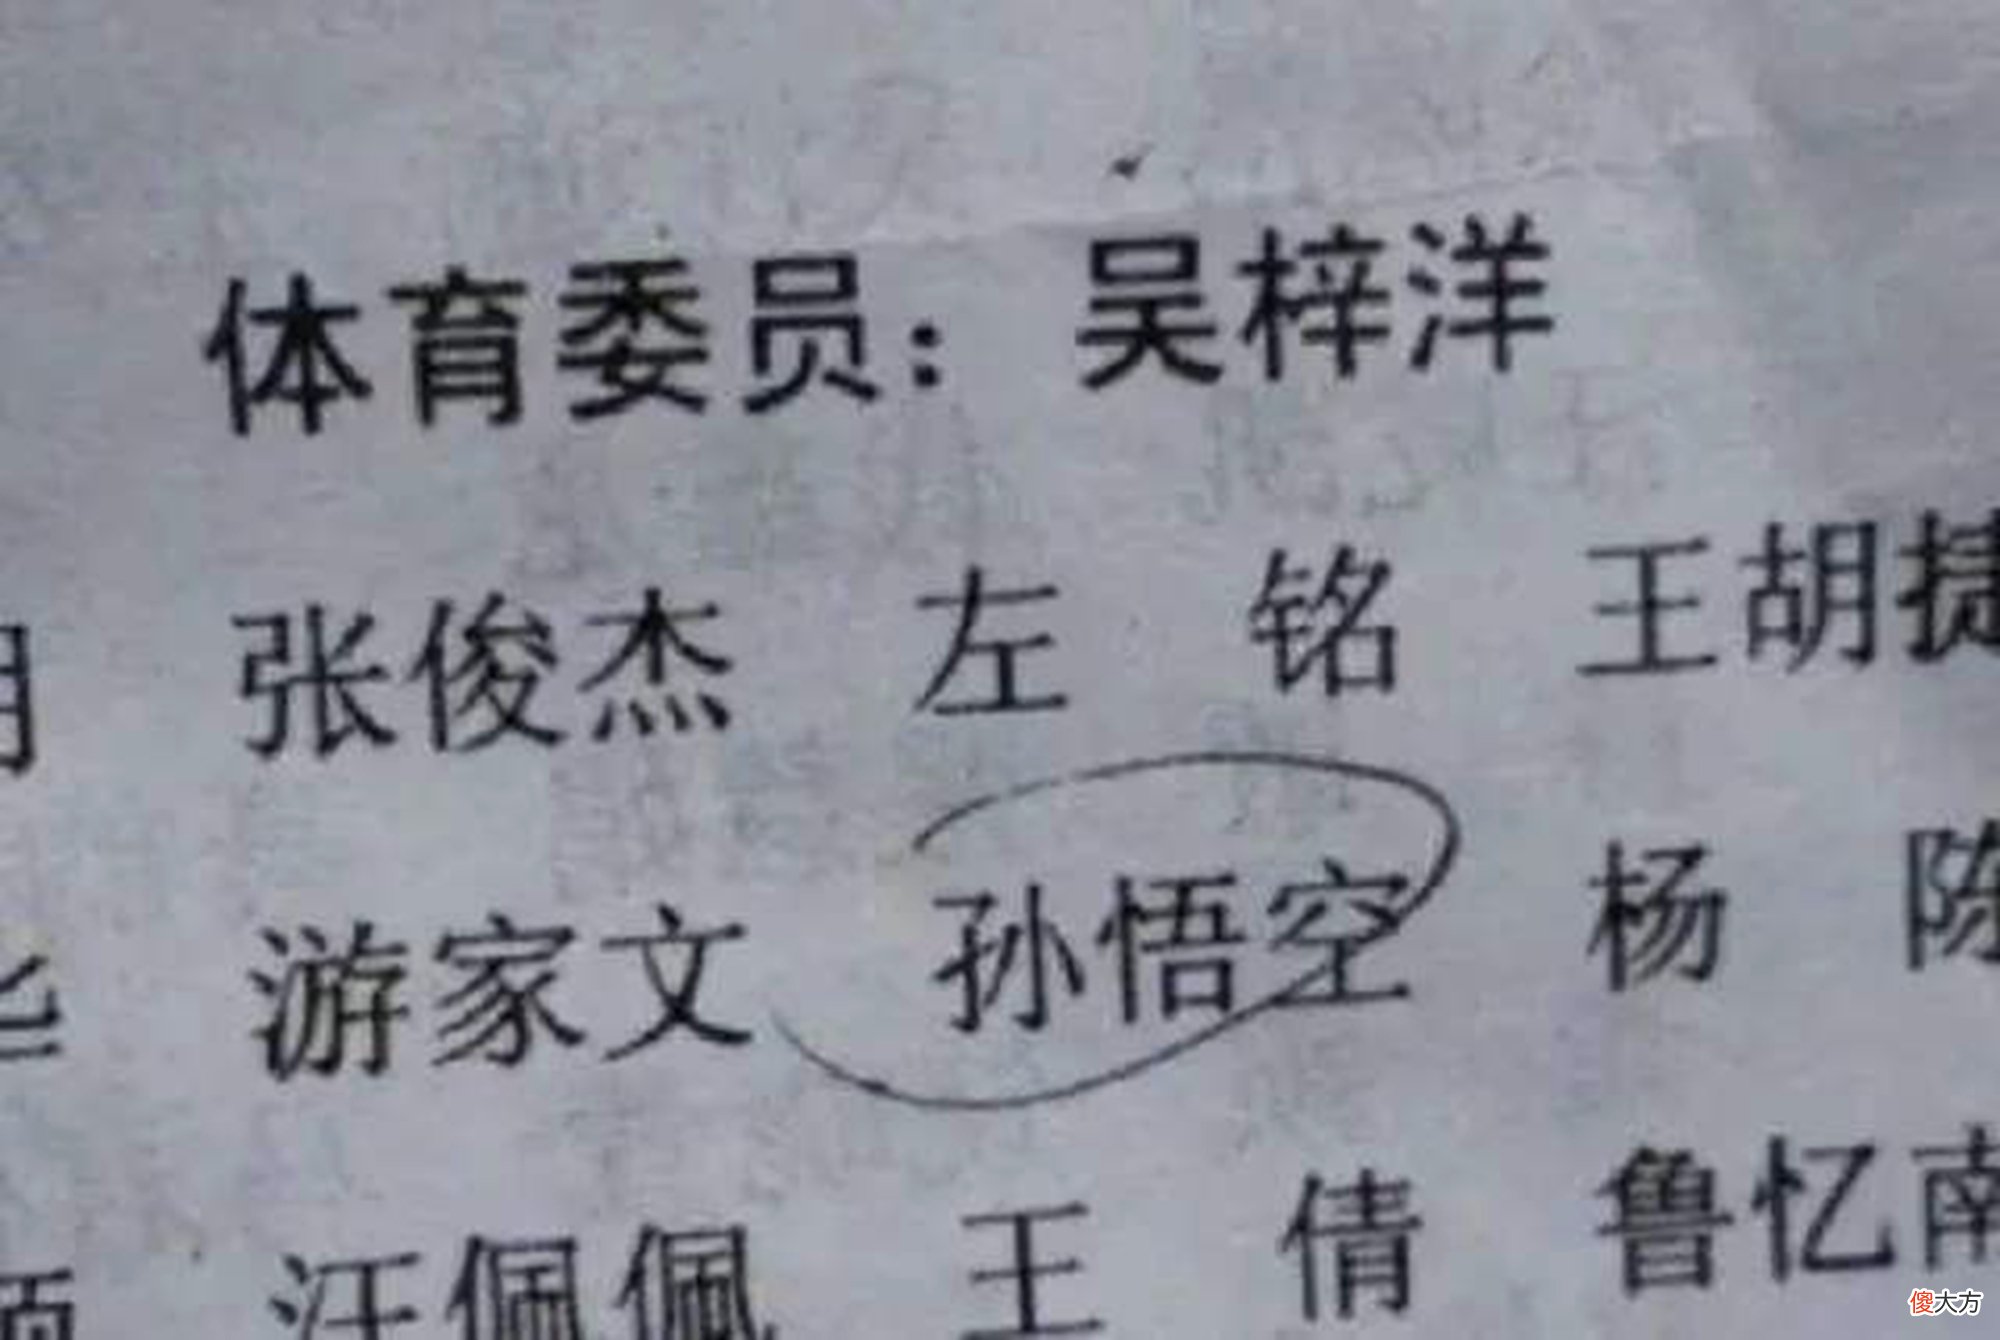 体育委员：吴梓洋
张俊杰 左 铭 王胡捷
游家文 孙悟空 杨 陈
汪佩佩 王 倩 鲁忆南
傻大方